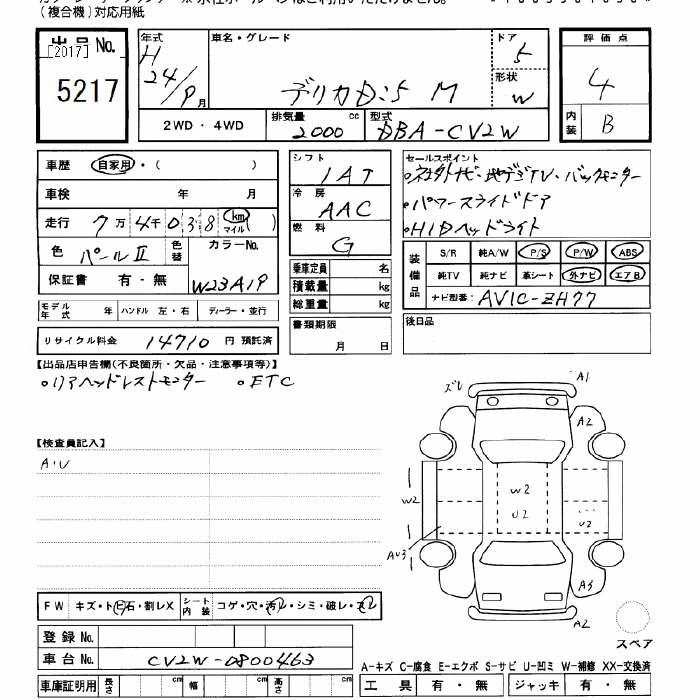 (複合機)対応用紙
出品 No.
[2017]
5217
年式
H
24/9 月
車名・グレード
デリカ D:5 M
ドア
5
形状
W
評価点
4
内装
B
2WD ・ 4WD
排気量 cc
2000
型式
DBA-CV2W
車歴 自家用・( )
車検 年 月
走行 7万 4千 0 3 8 km マイル ( )
色 パールⅡ
色替
カラーNo.
W23A19
保証書 有・無
モデル年式 年 ハンドル 左・右 ディーラー・並行
リサイクル料金 14710 円 預託済
シフト
IAT
冷房
AAC
燃料
G
乗車定員 名
積載量 kg
総重量 kg
書類期限
月 日
セールスポイント
・社外ナビ・地デジTV・バックモニター
・パワースライドドア
・HIDヘッドライト
装備品
S/R 純A/W P/S P/W ABS
純TV 純ナビ 革シート 外ナビ エアB
ナビ型番: AVIC-ZH77
後日品
【出品店申告欄(不良箇所・欠品・注意事項等)】
・リアヘッドレストモニター ・ETC
【検査員記入】
A・U
ズレ
A1
A2
W2
W2
U2
U2
AU3
A3
A2
スペア
FW キズ・トビ石・割レX
シート内装 コゲ・穴・汚レ・シミ・破レ・スレ
登録 No.
車台 No. CV2W-0800463
車庫証明用 長さ cm 幅 cm 高さ cm
A-キズ C-腐食 E-エクボ S-サビ U-凹ミ W-補修 XX-交換済
工具 有・無 ジャッキ 有・無